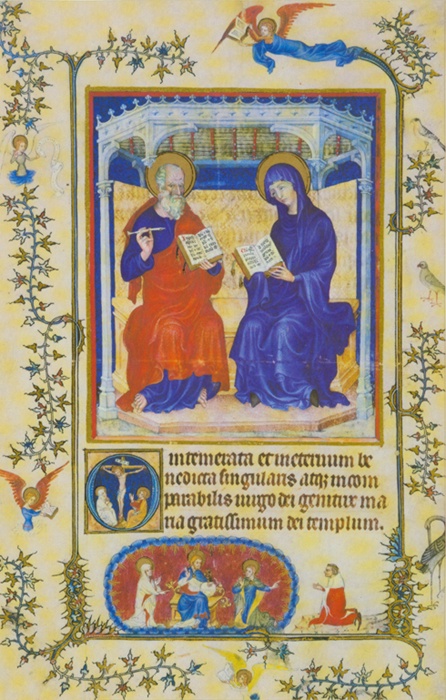 O intemerata et in eternum be
nedicta singularis atqꝫ incom
parabilis uirgo dei genitrix ma
ria gratissimum dei templum.